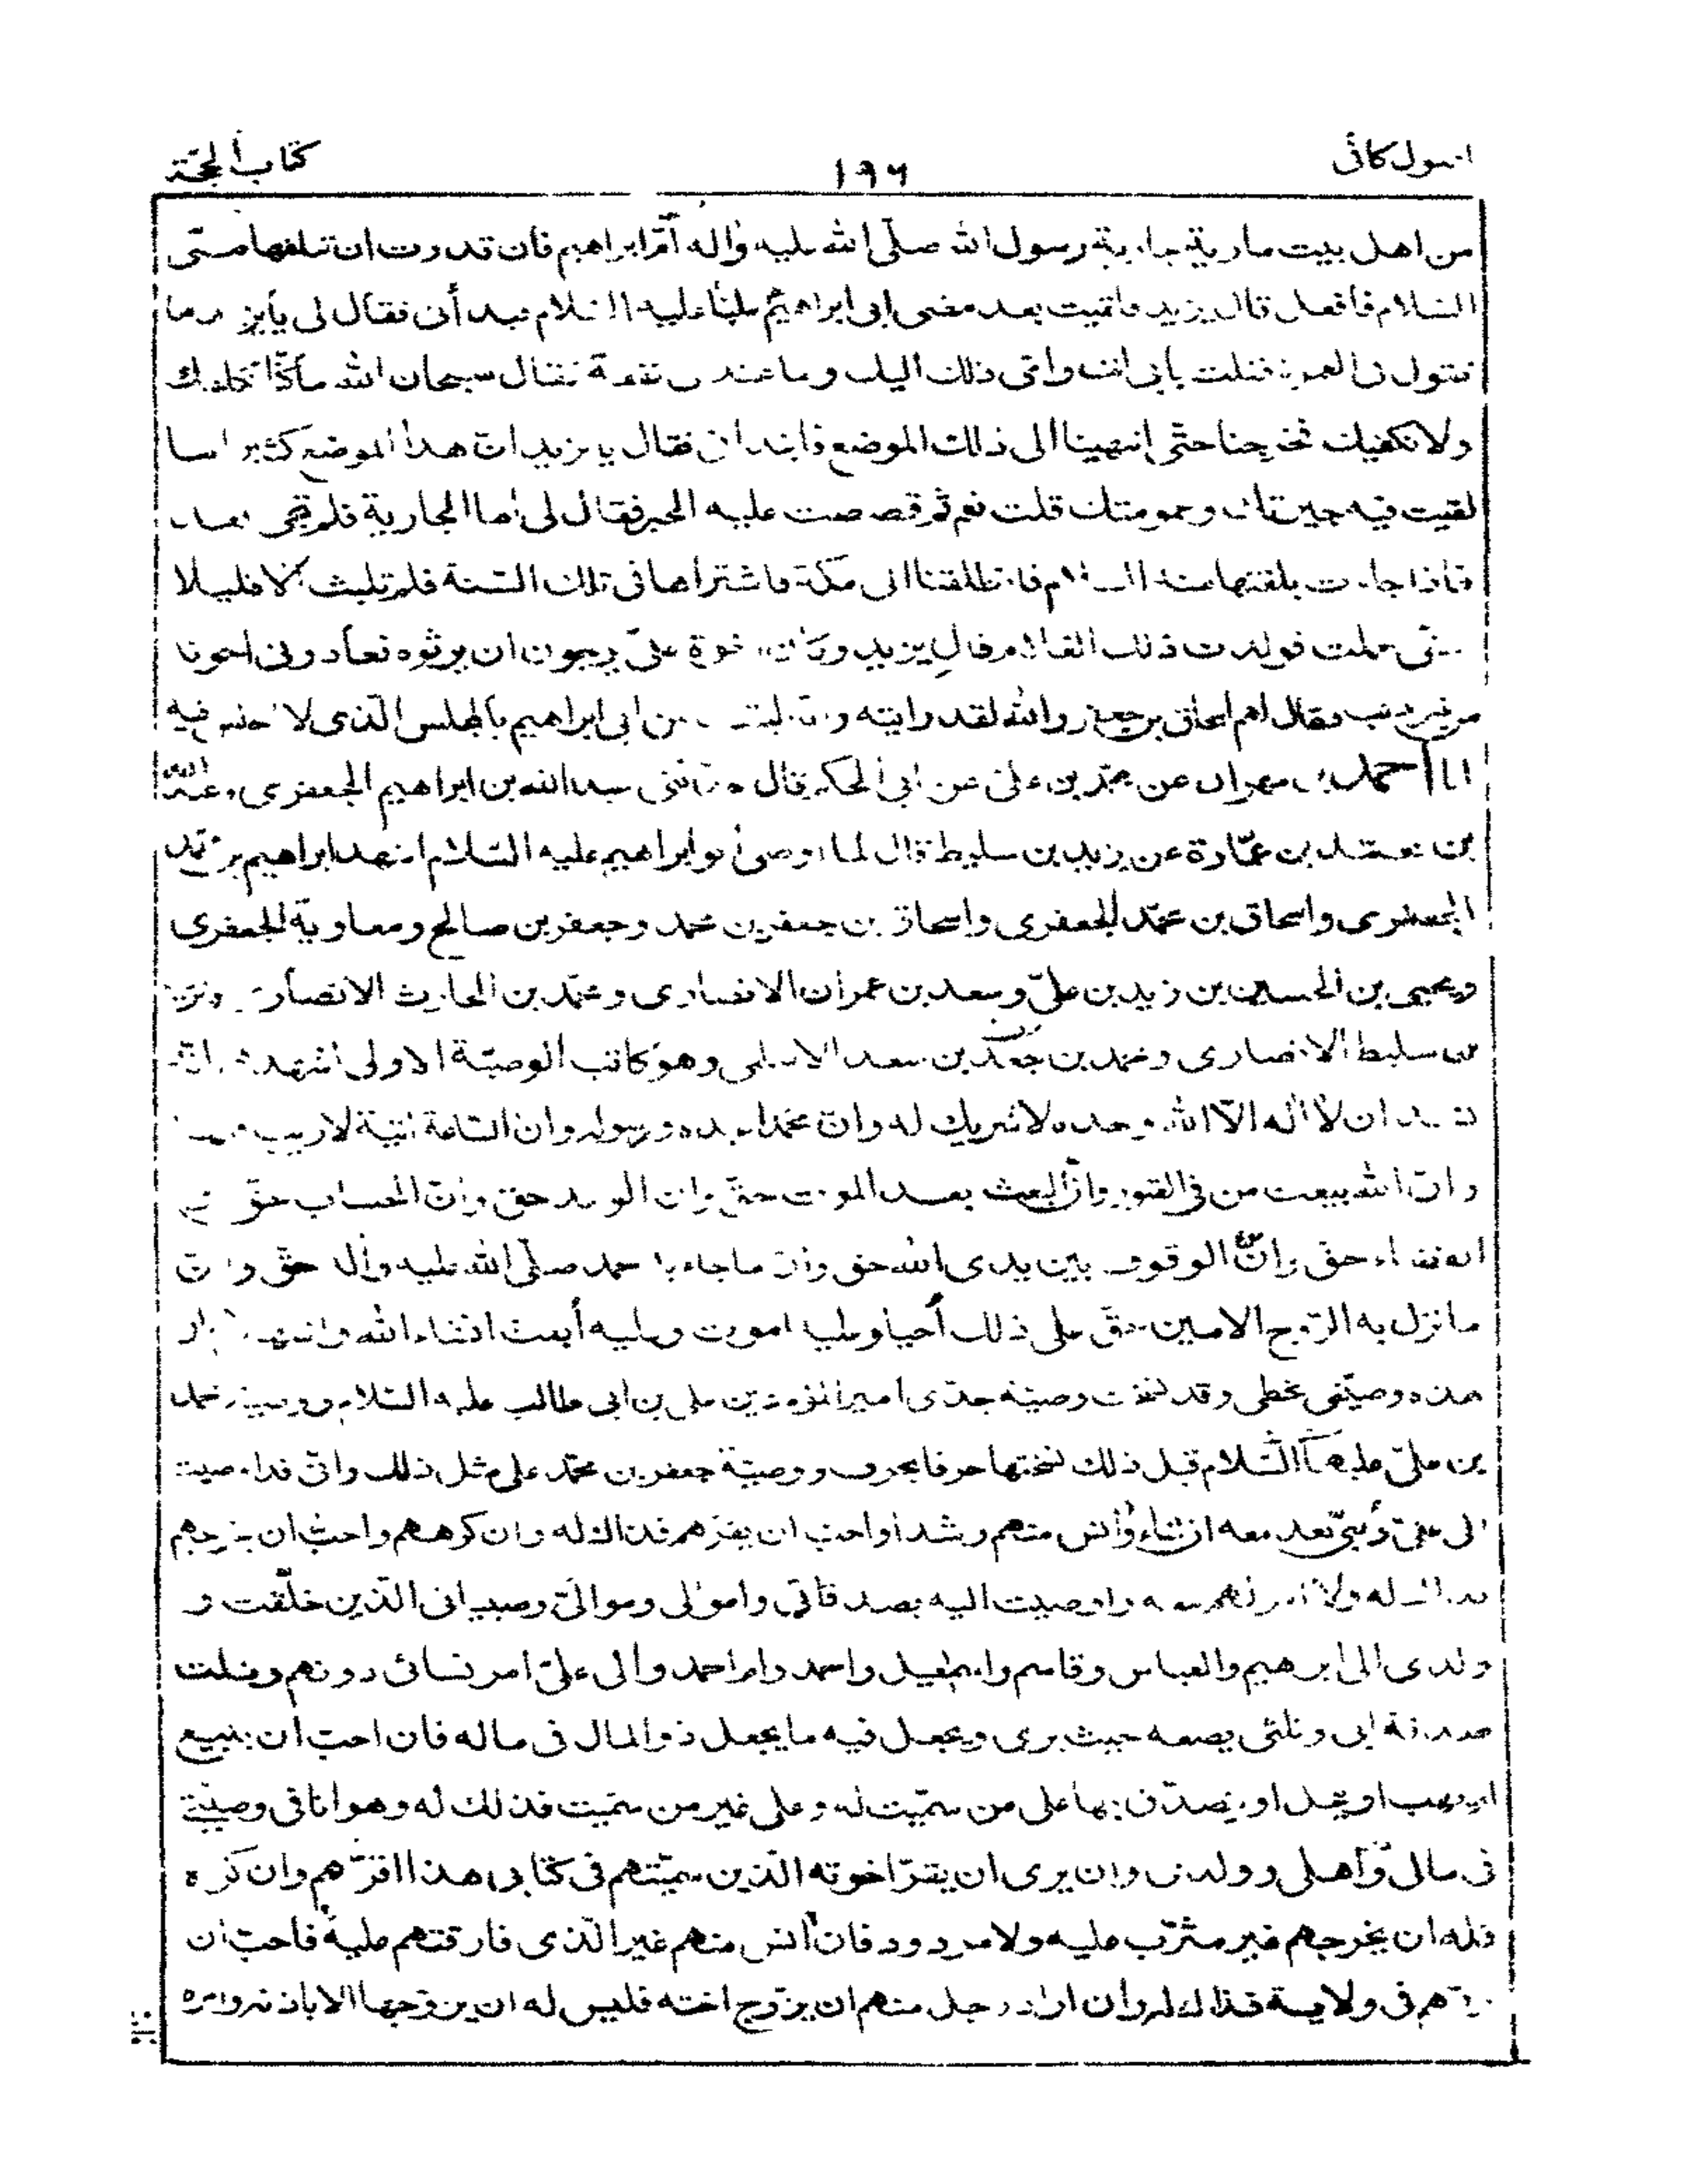 اصول كافى ١٩٦ كتاب الحجّة
من اهل بيت مارية جارية رسول الله صلّى الله عليه واله أمّ ابراهيم فان قدرت ان تبلغها منّى
السّلام فافعل قال يزيد فلقيت بعد مضى ابى ابراهيم عليّا عليه السّلام فبدأنى فقال لى يا يزيد ما
تقول فى العمرة فقلت بابى انت وامّى ذلك اليك وما عندى نفقة فقال سبحان الله ما كنّا نكلفك
ولا نكفيك فخرجنا حتّى انتهينا الى ذلك الموضع فابتدانى فقال يا يزيد انّ هذا الموضع كثيرا ما
لقيت فيه جيرتك وعمومتك قلت نعم ثمّ قصصت عليه الخبر فقال لى امّا الجارية فلم تجئ بعد
فاذا جاءت بلغتها منه السّلام فانطلقنا الى مكّة فاشتراها فى تلك السّنة فلم تلبث الا قليلا
حتّى حملت فولدت ذلك الغلام قال يزيد وكان اخوة علىّ يرجون ان يرثوه فعادونى اخوته
من غير ذنب فقال لهم اسحاق بن جعفر والله لقد رايته وانّه ليقعد من ابى ابراهيم بالمجلس الّذى لا اجلس فيه
انا احمد بن مهران عن محمّد بن على عن ابى الحكم قال حدّثنى عبدالله بن ابراهيم الجعفرى وعبدالله
بن محمّد بن عمّارة عن يزيد بن سليط قال لما اوصى أبو ابراهيم عليه السّلام اشهد ابراهيم بن محمّد
الجعفرى واسحاق بن محمّد الجعفرى واسحاق بن جعفر بن محمد وجعفر بن صالح ومعاوية الجعفرى
ويحيى بن الحسين بن زيد بن علىّ وسعد بن عمران الانصارى ومحمّد بن الحارث الانصارى ويزيد
بن سليط الانصارى ومحمد بن جعفر بن سعد الاسلمى وهو كاتب الوصيّة الاولى اشهدهم انّه
يشهد ان لا اله الّا الله وحده لا شريك له وانّ محمّدا عبده ورسوله وان السّاعة اتية لا ريب فيها
وانّ الله يبعث من فى القبور وانّ البعث بعد الموت حقّ وان الوعد حق وانّ الحساب حقّ
القضاء حقّ وانّ الوقوف بين يدى الله حق وانّ ما جاء به محمد صلّى الله عليه وآله حقّ وانّ
ما نزل به الرّوح الامين حقّ على ذلك أحيا وعليه اموت وعليه أبعث انشاءالله واشهدهم انّ
هذه وصيّتى بخطى وقد نسخت وصيّة جدّى اميرالمؤمنين على بن ابى طالب عليه السّلام ووصيّة محمد
بن علىّ عليهما السّلام قبل ذلك نسختها حرفا بحرف ووصيّة جعفر بن محمّد على مثل ذلك وانّى قد اوصيت
الى علىّ وبنىّ بعد معه ان شاء وانس منهم رشدا واحبّ ان يقرّهم فذاك له وان كرههم واحبّ ان يخرجهم
فذاك له ولا امر لهم معه واوصيت اليه بصدقاتى واموالى وموالىّ وصبيانى الّذين خلّفت و
ولدى الى ابرهيم والعباس وقاسم واسمعيل واحمد وام احمد والى علىّ امر نسائى دونهم وثلث
صدقة ابى وثلثى يضعه حيث يرى ويجعل فيه ما يجعل ذو المال فى ماله فان احبّ ان يبيع
او يهب او ينحل او يتصدّق بها على من سمّيت له وعلى غير من سمّيت فذلك له وهو انا فى وصيّتى
فى مالى وأهلى وولدى وان يرى ان يقرّ اخوته الّذين سمّيتهم فى كتابى هذا اقرّهم وان كره
فله ان يخرجهم غير مثرّب عليه ولا مردود فان انس منهم غير الّذى فارقتهم عليه فاحبّ ان
يردّهم فى ولاية فذاك له وان اراد رجل منهم ان يزوّج اخته فليس له ان يزوّجها الا باذنه وامره